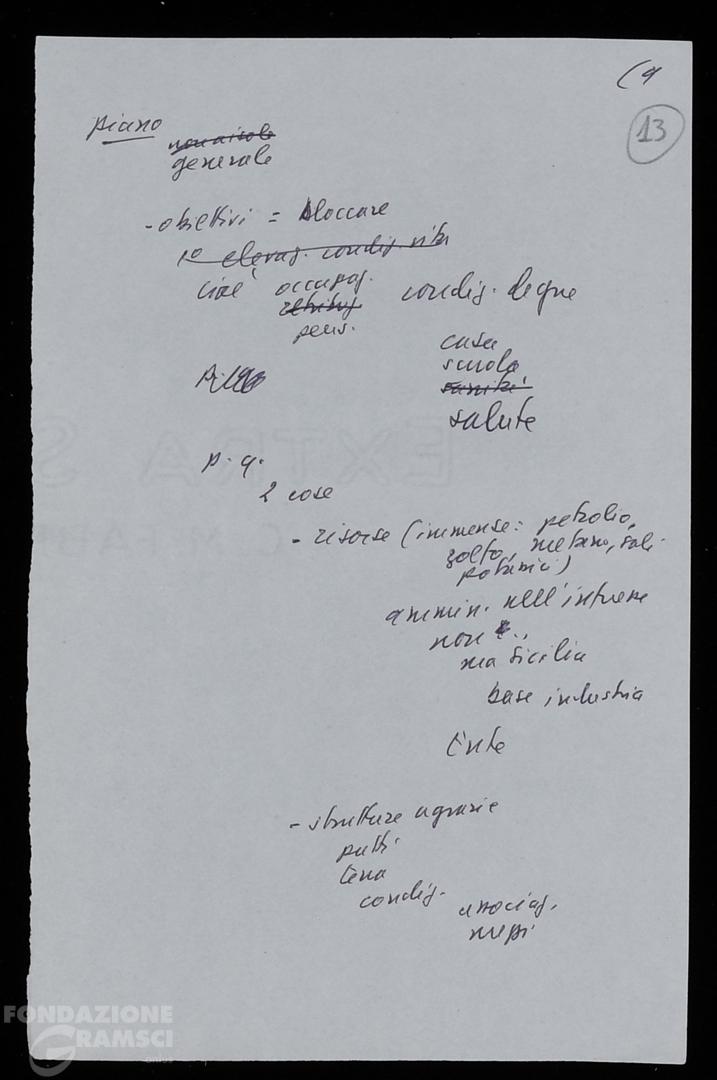 (9
13
piano
generale
- obiettivi = bloccare
1º elevaz. condiz. vita
cioè occupaz. condiz. degne
retribuz
pens.
casa
scuola
sanità
salute
p. q.
2 cose
- risorse (immense: petrolio,
zolfo, metano, sali
potassici)
ammin. nell'interesse
non
ma Sicilia
base industria
Ente
- strutture agrarie
patti
terra
condiz.
associaz.
mezzi
FONDAZIONE
GRAMSCI
onlus